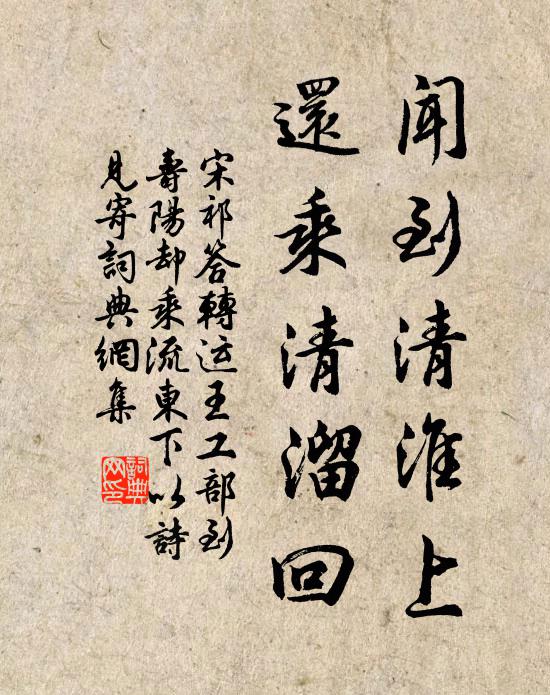 聞到清淮上
還乘清溜回
宋祁答轉运王工部到
壽陽却乘流東下以詩
見寄詞典網集
詞典
网印